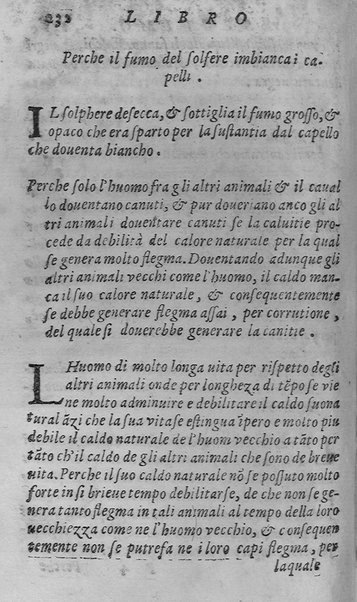 232 LIBRO
Perche il fumo del solfere imbianca i ca
pelli.
IL solphere desecca, & sottiglia il fumo grosso, &
opaco che era sparto per la sustantia dal capello
che douenta biancho.
Perche solo l'huomo fra gli altri animali & il caual
lo douentano canuti, & pur doueriano anco gli al
tri animali douentare canuti se la caluitie pro-
cede da debilità del calore naturale per la qual
se genera molto flegma. Douentando adunque gli
altri animali vecchi come l'huomo, il caldo man-
ca il suo calore naturale, & consequentemente
se debbe generare flegma assai, per corrutione,
del quale si douerebbe generare la canitie.
L'Huomo di molto longa uita per rispetto degli
altri animali onde per longheza di tẽpo se vie
ne molto adminuire e debilitare il caldo suo na
tural ãzi che la sua vita se estingua ĩpero e molto piu
debile il caldo naturale de l'huom vecchio a tãto per
tãto ch'il caldo de gli altri animali che sono de breue
uita. Perche il suo caldo naturale nõ se possuto molto
forte in sì brieue tempo debilitarse, de che non se ge-
nera tanto flegma in tali animali al tempo della loro
uecchiezza come ne l'huomo vecchio, & consequen
temente non se putrefa ne i loro capi flegma, per
laquale